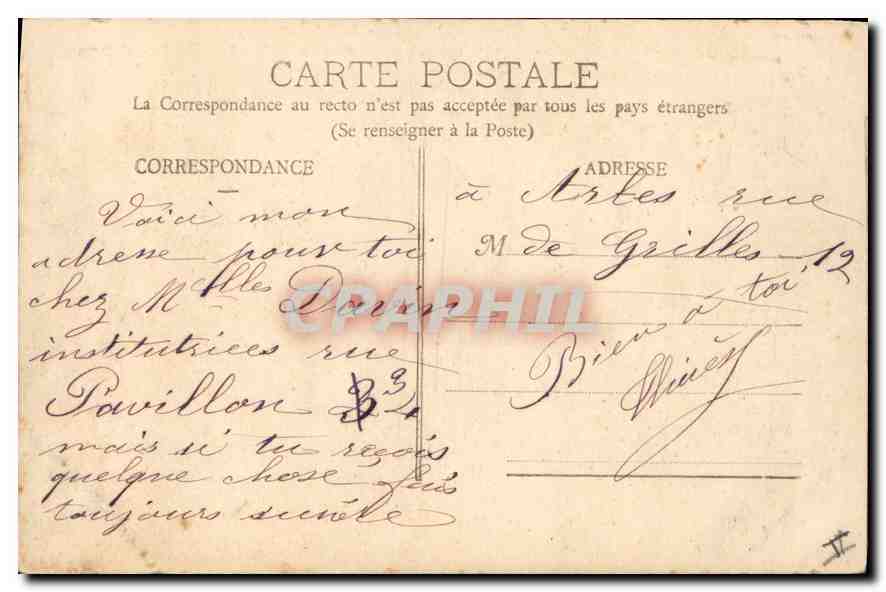 CARTE POSTALE
La Correspondance au recto n'est pas acceptée par tous les pays étrangers
(Se renseigner à la Poste)
CORRESPONDANCE
Voici mon
adresse pour toi
chez Mlles Davin
institutrices rue
Pavillon 34
mais si tu reçois
quelque chose fais
toujours suivre
ADRESSE
à Arles rue
M de Grilles 12
Bien à toi
CPAPHIL